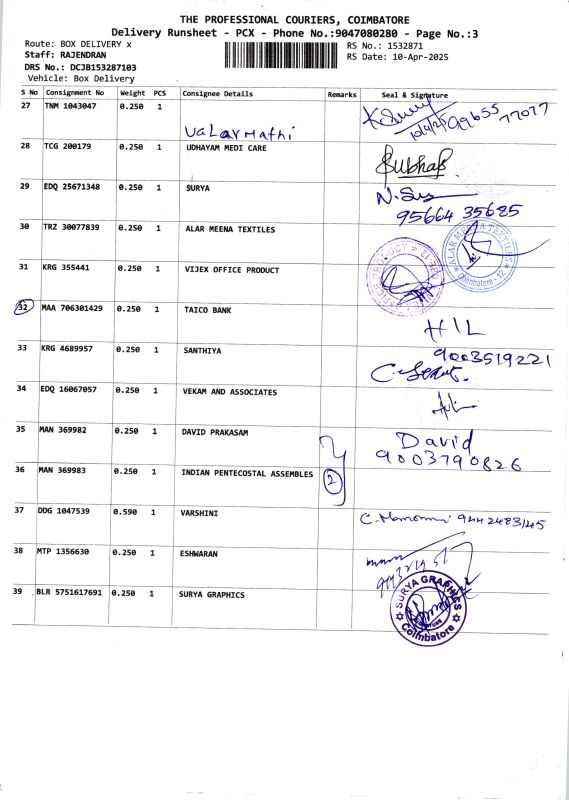 THE PROFESSIONAL COURIERS, COIMBATORE
Delivery Runsheet - PCX - Phone No.:9047080280 - Page No.:3
Route: BOX DELIVERY x
RS No.: 1532871
Staff: RAJENDRAN
RS Date: 10-Apr-2025
DRS No.: DCJB153287103
Vehicle: Box Delivery
S No Consignment No Weight PCS Consignee Details Remarks Seal & Signature
27 TNM 1043047 0.250 1 Valarmathi 99655 77077
28 TCG 200179 0.250 1 UDHAYAM MEDI CARE
29 EDQ 25671348 0.250 1 SURYA
95664 35685
30 TRZ 30077839 0.250 1 ALAR MEENA TEXTILES ALAR MEENA TEXTILES Coimbatore - 12
31 KRG 355441 0.250 1 VIJEX OFFICE PRODUCT
32 MAA 706301429 0.250 1 TAICO BANK H1L
33 KRG 4689957 0.250 1 SANTHIYA 9003519221
34 EDQ 16067057 0.250 1 VEKAM AND ASSOCIATES
35 MAN 369982 0.250 1 DAVID PRAKASAM David
9003790826
36 MAN 369983 0.250 1 INDIAN PENTECOSTAL ASSEMBLES 2
37 DDG 1047539 0.590 1 VARSHINI
38 MTP 1356630 0.250 1 ESHWARAN
39 BLR 5751617691 0.250 1 SURYA GRAPHICS SURYA GRAPHICS Coimbatore